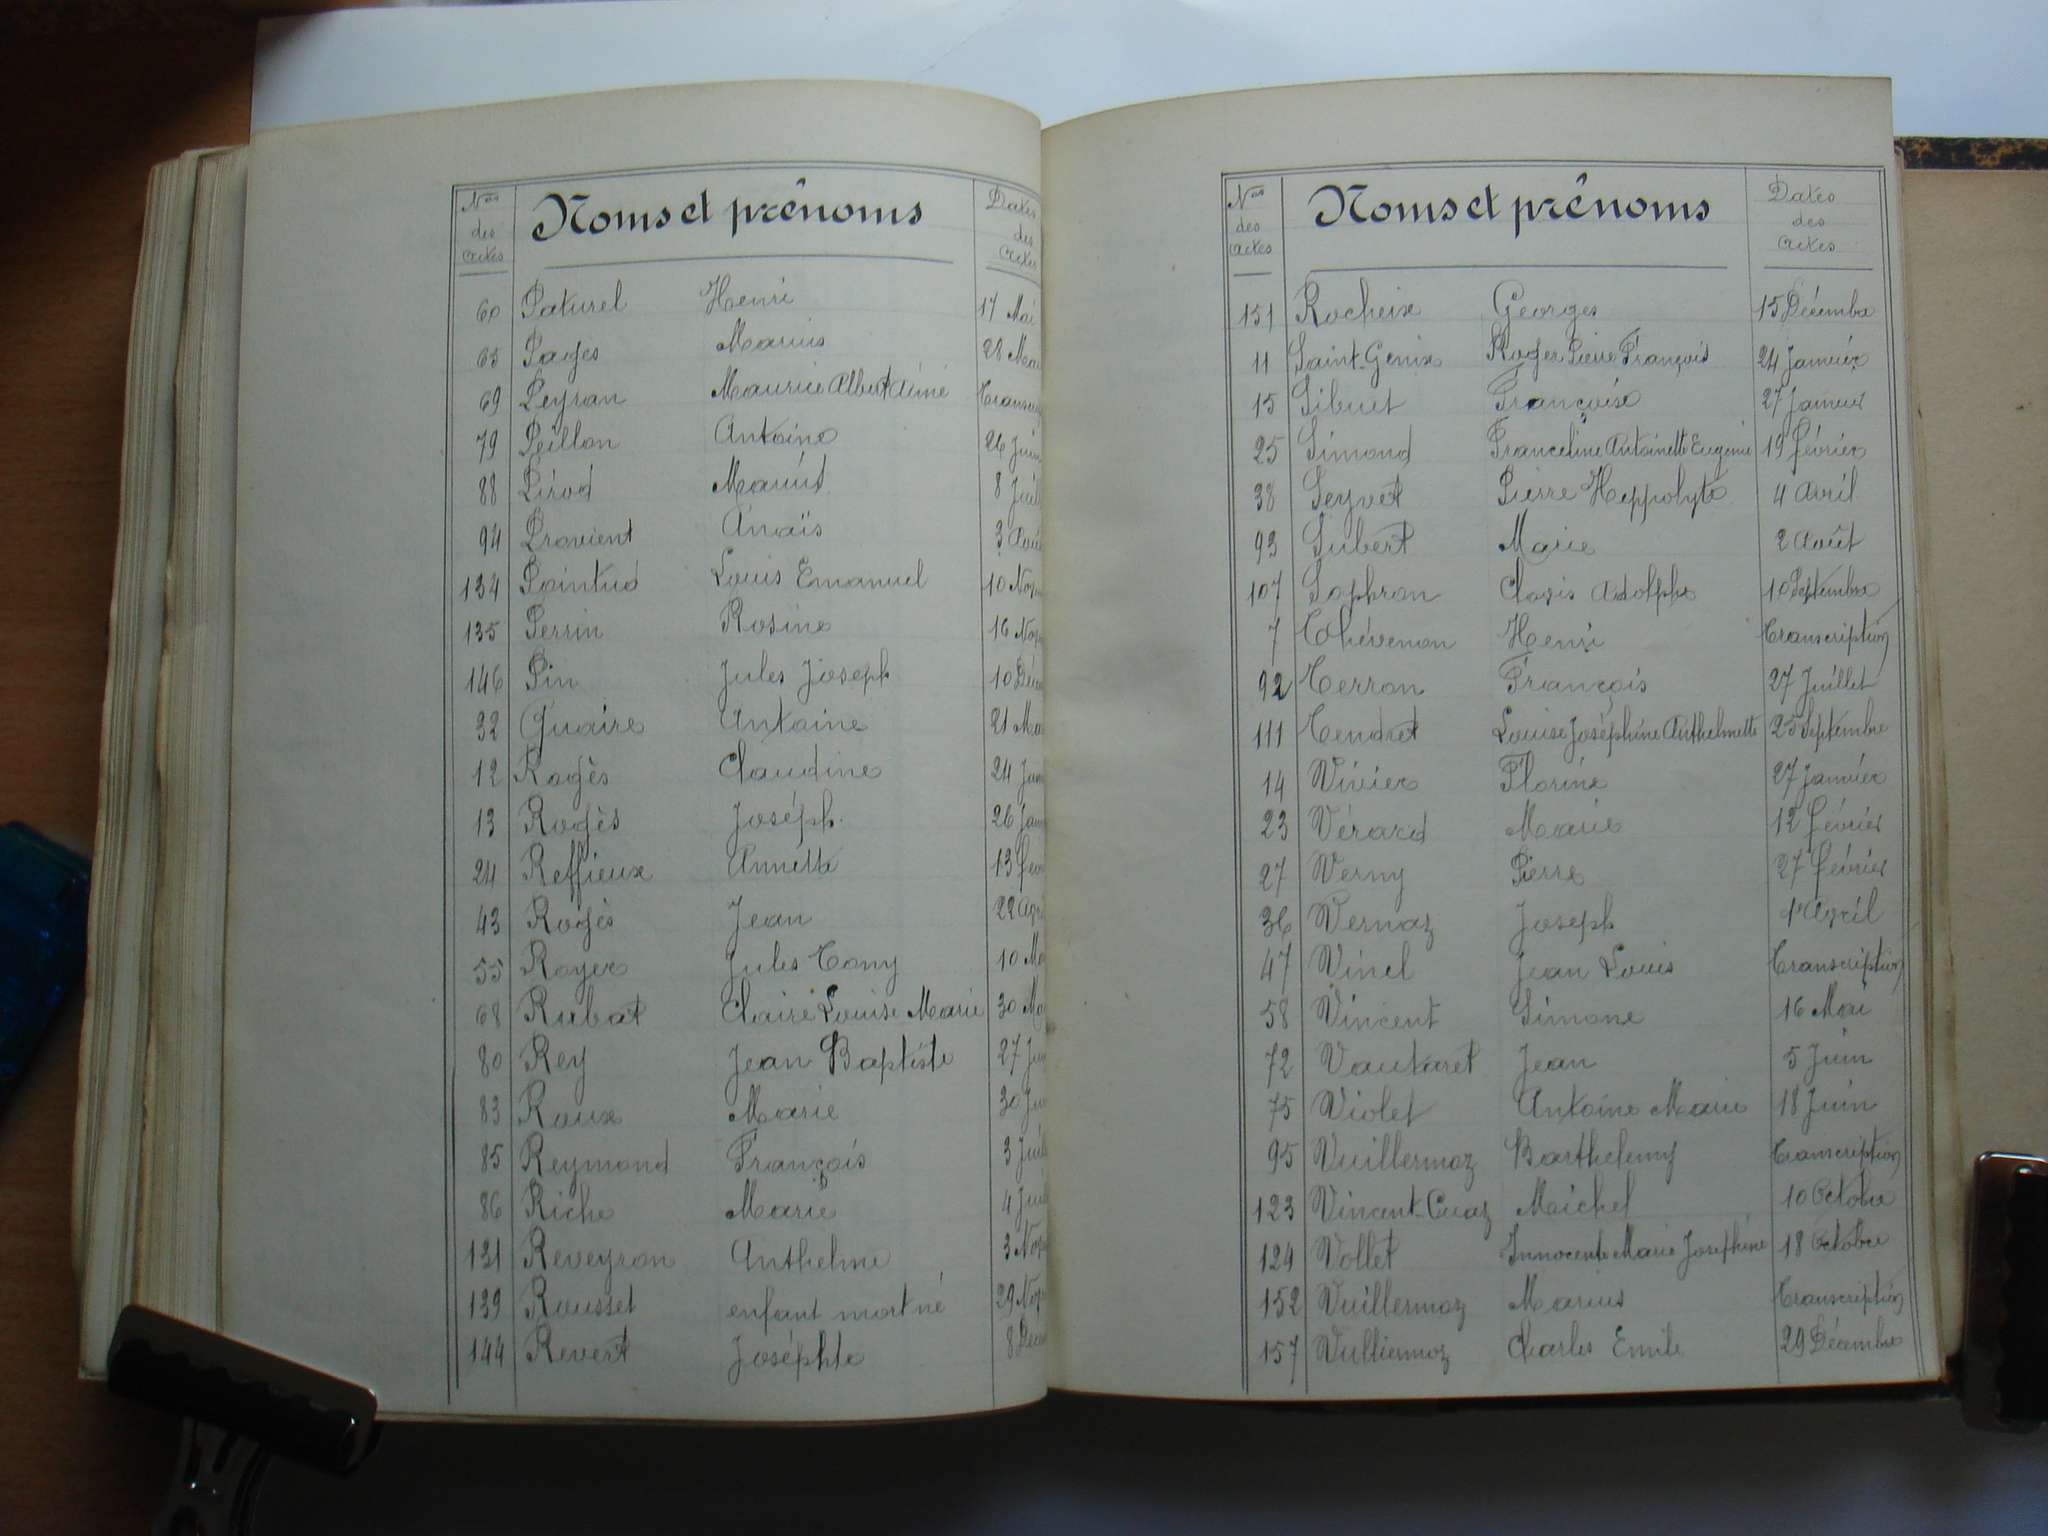 Nos des actes Noms et prénoms Dates des actes
60 Paturel Henri 17 Mai
65 Pagès Marius 28 Mai
69 Peyran Maurice Albert Aimé
79 Peillon Antoine 26 Juin
88 Pirod Marius 8
94 Pravient Anaïs 3
134 Pointud Louis Emanuel 10
135 Perrin Rosine 16
146 Pin Jules Joseph 10
32 Quaire Antoine 21
12 Rogès Claudine 24
13 Rogès Joséph 26
24 Reffieux Annette 13
43 Rogès Jean 22
55 Royer Jules Tony 10
68 Rubat Claire Louise Marie 30
80 Rey Jean Baptiste 27
83 Roux Marie 30
85 Reymond François 3
86 Riche Marie 4
131 Reveyron Anthelme 3
139 Rousset enfant mort né 29
144 Revert Joséphte 8
Nos des actes Noms et prénoms Dates des actes
151 Rocheix Georges 15 Décembre
11 Saint-Genix Roger Pierre François 24 Janvier
15 Sibuet Françoise 27 Janvier
25 Simond Franceline Antoinette Eugénie 19 Février
38 Seyvet Pierre Heppolyte 4 Avril
93 Subert Marie 2 Août
107 Sophron Clovis Adolphe 10 Septembre
7 Thévenon Henri Transcription
92 Terron François 27 Juillet
111 Tendret Louise Joséphine Anthelmette 25 Septembre
14 Vivier Florine 27 Janvier
23 Vérard Marie 12 Février
27 Verny Pierre 27 Février
36 Vernaz Joseph 1r Avril
47 Vinel Jean Louis Transcription
58 Vincent Simone 16 Mai
72 Vautaret Jean 5 Juin
75 Violet Antoine Marie 18 Juin
95 Vuillermoz Barthelemy Transcription
123 Vincent-Cuaz Michel 10 Octobre
124 Vollet Innocente Marie Joséphine 18 Octobre
152 Vuillermoz Marius Transcription
157 Vulliermoz Charles Emile 29 Décembre